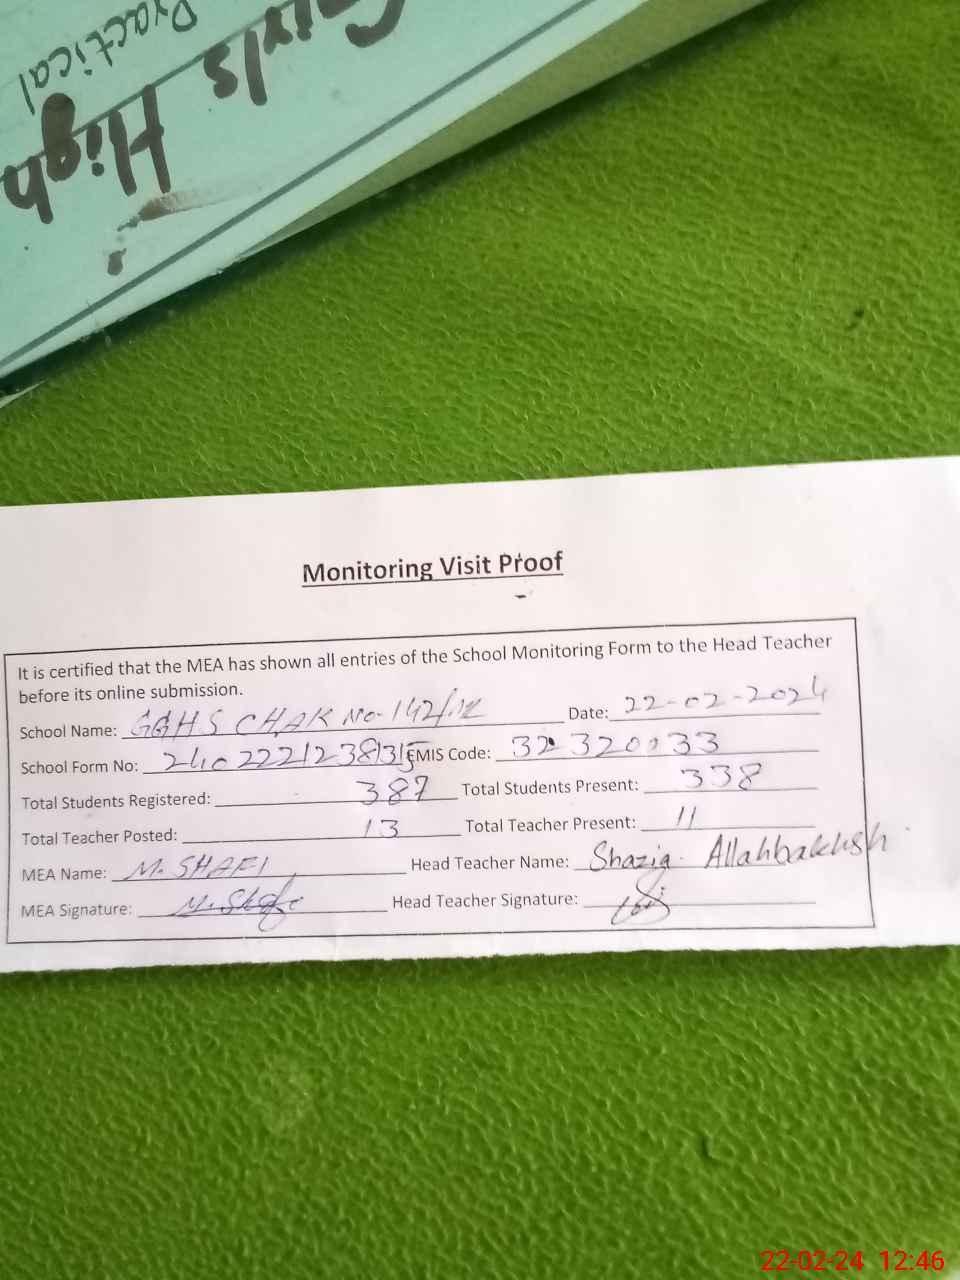 Girls High
Practical
Monitoring Visit Proof
It is certified that the MEA has shown all entries of the School Monitoring Form to the Head Teacher
before its online submission.
School Name: GGHS CHAK No-142/ Date: 22-02-2024
School Form No: EMIS Code: 32320033
Total Students Registered: 387 Total Students Present: 338
Total Teacher Posted: 13 Total Teacher Present: 11
MEA Name: M. SHAFI Head Teacher Name: Shazia Allahbakhsh
MEA Signature: M. Shafi Head Teacher Signature:
22-02-24 12:46